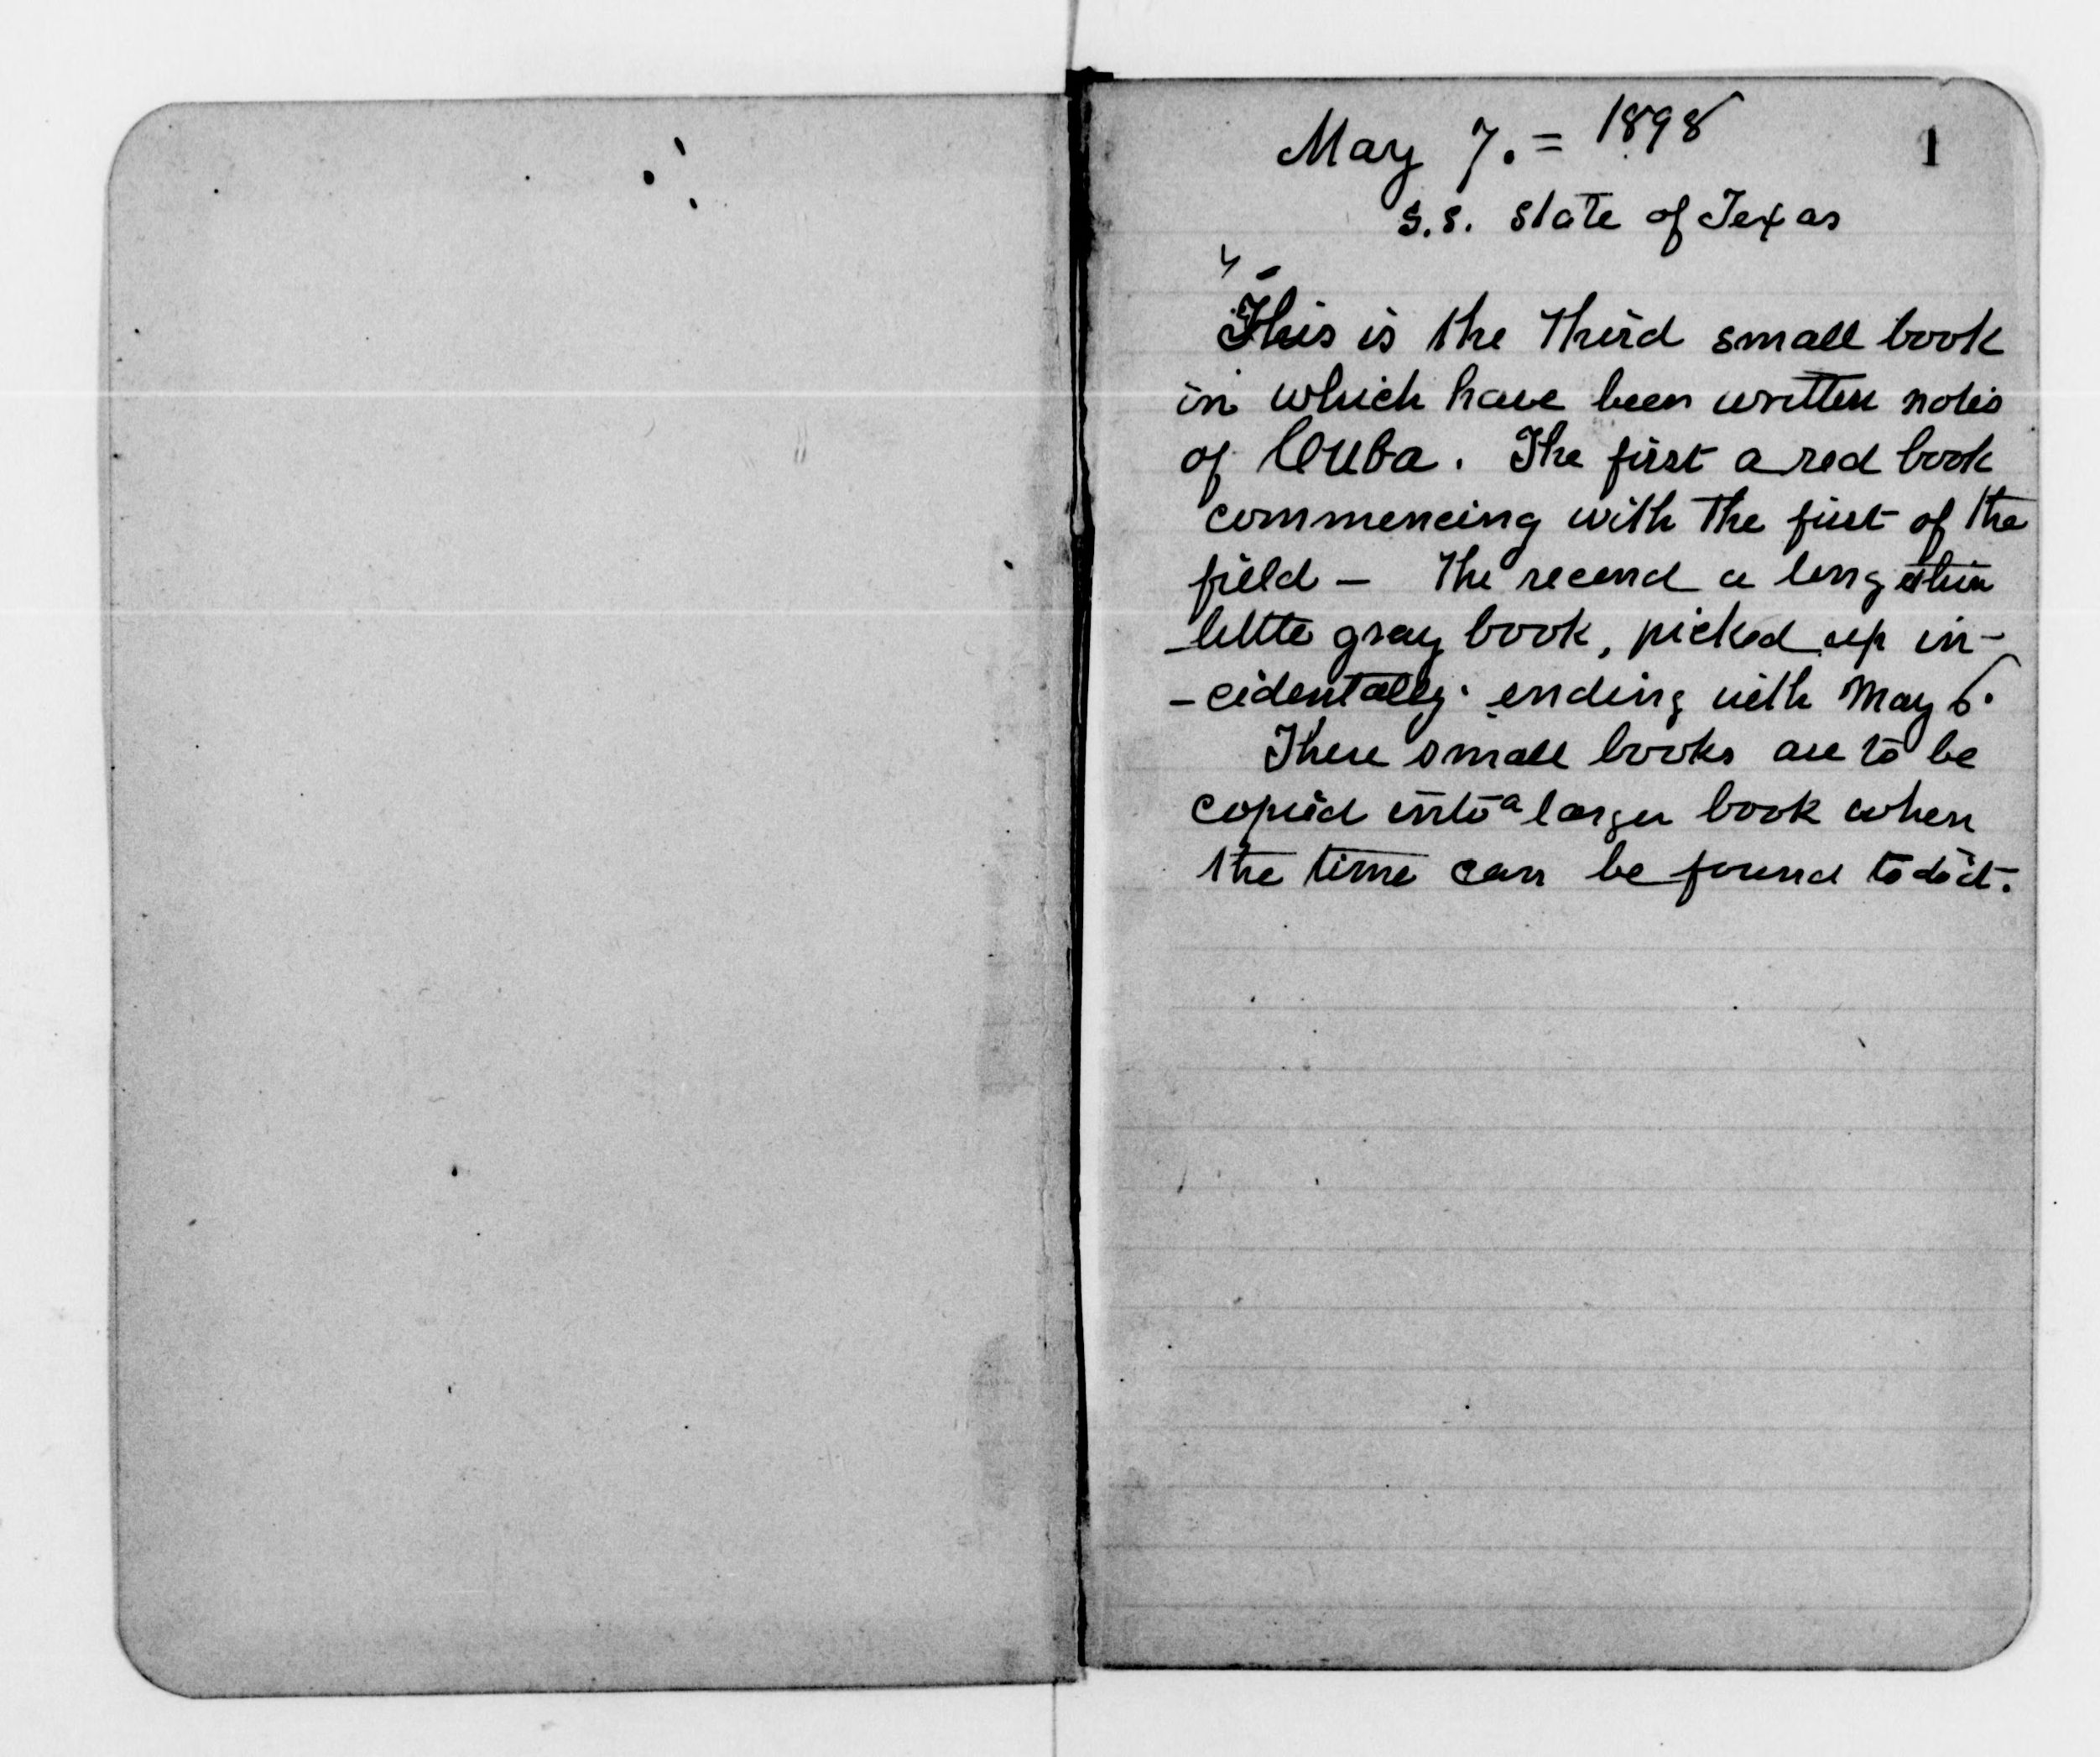 May 7. = 1898
1
S.S. State of Texas
This is the third small book
in which have been written notes
of Cuba. The first a red book
commencing with the first of the
field - The second a long thin
little gray book, picked up in-
- cidentally. ending with May 6.
These small books are to be
copied into a larger book when
the time can be found to do it.